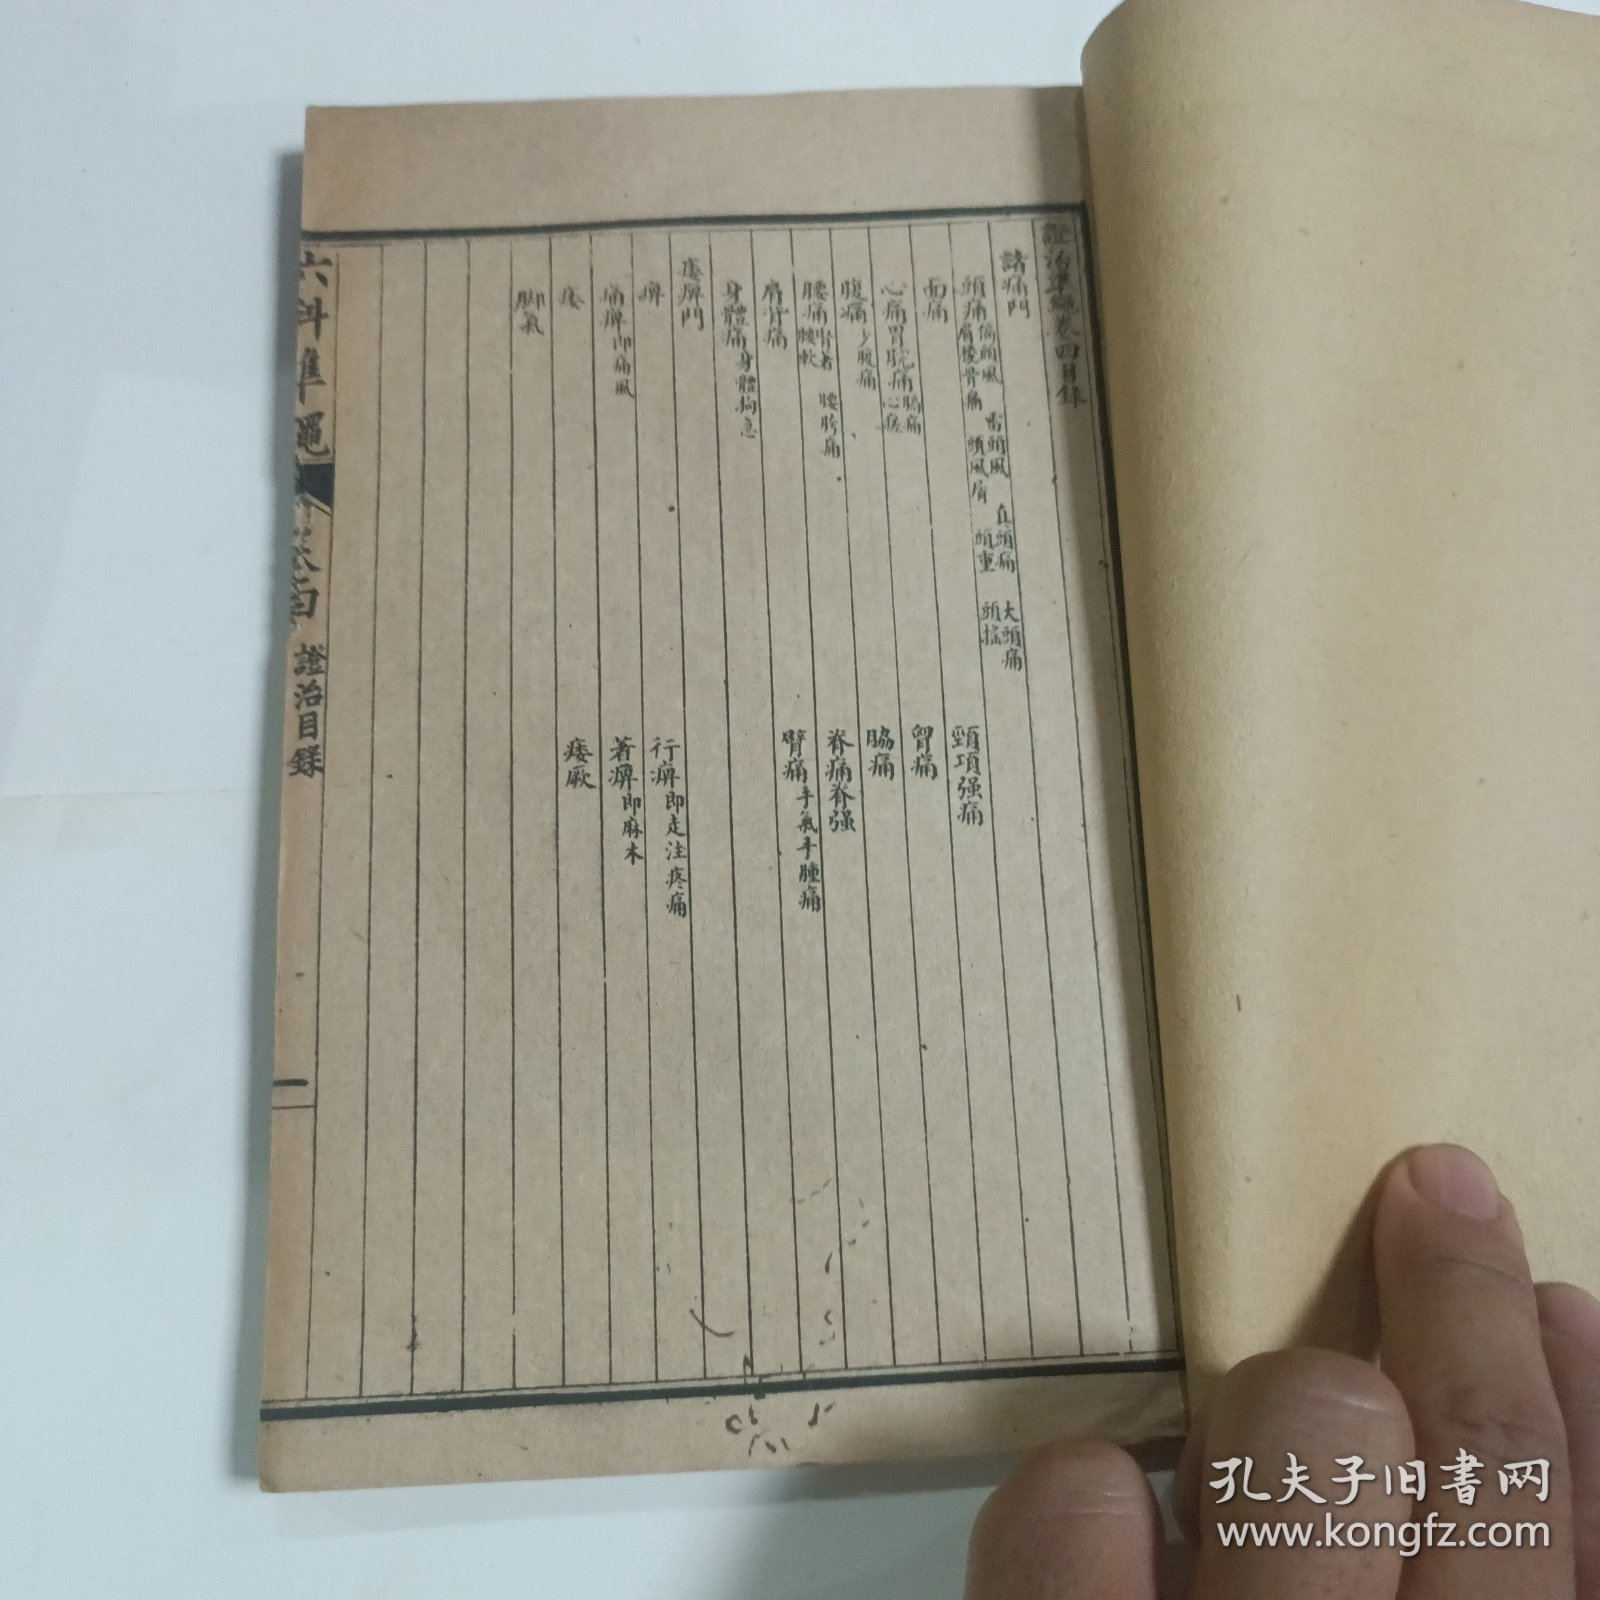 證治準繩卷四目錄
諸痛門
頭痛 偏頭風 雷頭風 真頭痛 大頭痛
眉棱骨痛 頭風屑 頭重 頭搖
頸項强痛
面痛
胃痛
心痛 胃脘痛 胸痛
心痃
脇痛
腹痛 少腹痛
脊痛脊强
腰痛 腎著 腰胯痛
腰軟
臂痛 手氣手腫痛
肩背痛
身體痛 身體拘急
痿痹門
行痹 即走注疼痛
痹
著痹 即麻木
痛痹 即痛風
痿厥
痿
脚氣
六科準繩
證治目錄
一
孔夫子旧書网
www.kongfz.com